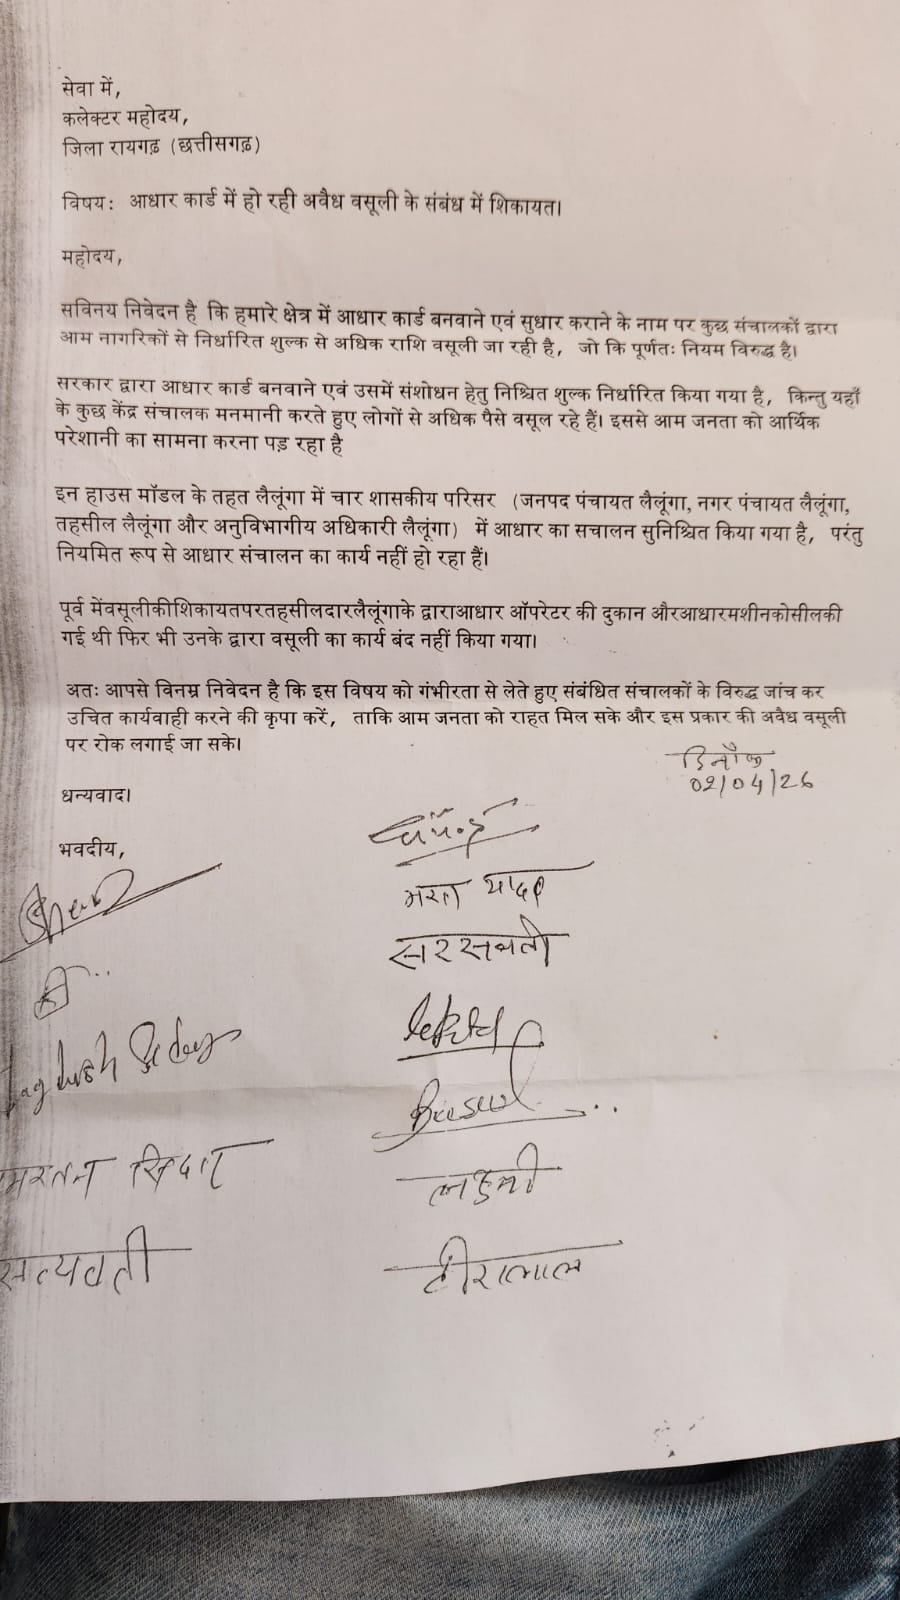 सेवा में,
कलेक्टर महोदय,
जिला रायगढ़ (छत्तीसगढ़)
विषय: आधार कार्ड में हो रही अवैध वसूली के संबंध में शिकायत।
महोदय,
सविनय निवेदन है कि हमारे क्षेत्र में आधार कार्ड बनवाने एवं सुधार कराने के नाम पर कुछ संचालकों द्वारा
आम नागरिकों से निर्धारित शुल्क से अधिक राशि वसूली जा रही है, जो कि पूर्णतः नियम विरुद्ध है।
सरकार द्वारा आधार कार्ड बनवाने एवं उसमें संशोधन हेतु निश्चित शुल्क निर्धारित किया गया है, किन्तु यहाँ
के कुछ केंद्र संचालक मनमानी करते हुए लोगों से अधिक पैसे वसूल रहे हैं। इससे आम जनता को आर्थिक
परेशानी का सामना करना पड़ रहा है
इन हाउस मॉडल के तहत लैलूंगा में चार शासकीय परिसर (जनपद पंचायत लैलूंगा, नगर पंचायत लैलूंगा,
तहसील लैलूंगा और अनुविभागीय अधिकारी लैलूंगा) में आधार का सचालन सुनिश्चित किया गया है, परंतु
नियमित रूप से आधार संचालन का कार्य नहीं हो रहा हैं।
पूर्व मेंवसूलीकीशिकायतपरतहसीलदारलैलूंगाके द्वाराआधार ऑपरेटर की दुकान औरआधारमशीनकोसीलकी
गई थी फिर भी उनके द्वारा वसूली का कार्य बंद नहीं किया गया।
अतः आपसे विनम्र निवेदन है कि इस विषय को गंभीरता से लेते हुए संबंधित संचालकों के विरुद्ध जांच कर
उचित कार्यवाही करने की कृपा करें, ताकि आम जनता को राहत मिल सके और इस प्रकार की अवैध वसूली
पर रोक लगाई जा सके।
दिनाँक
02/04/26
धन्यवाद।
भवदीय,
यादव
सरसवती
सिदार
सत्यवती